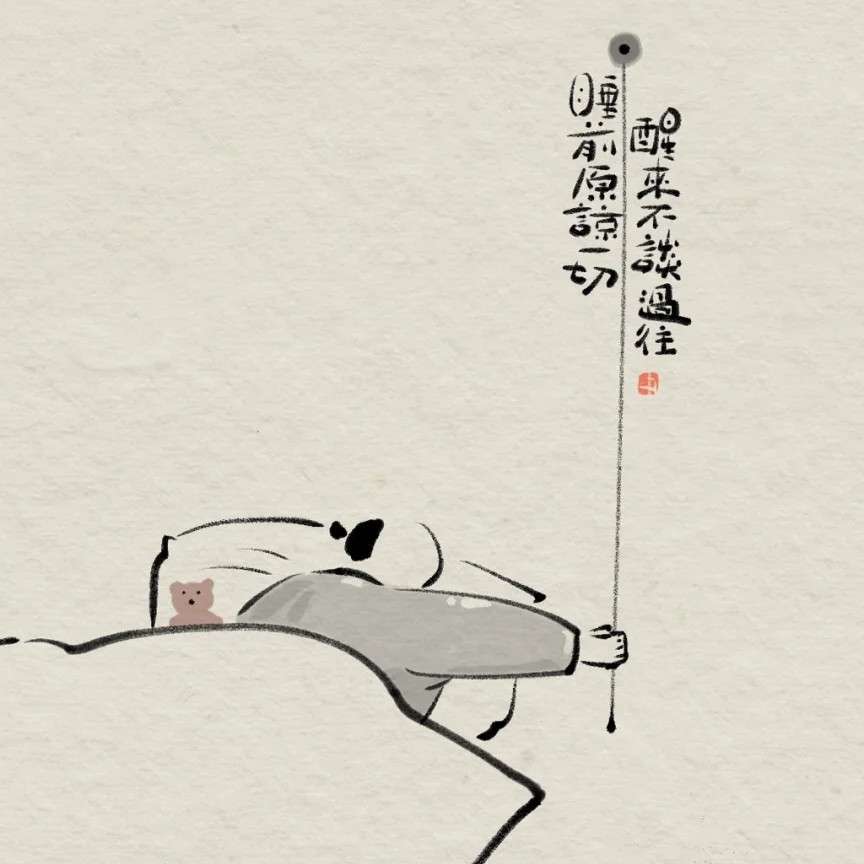 睡前原諒一切
醒來不談過往